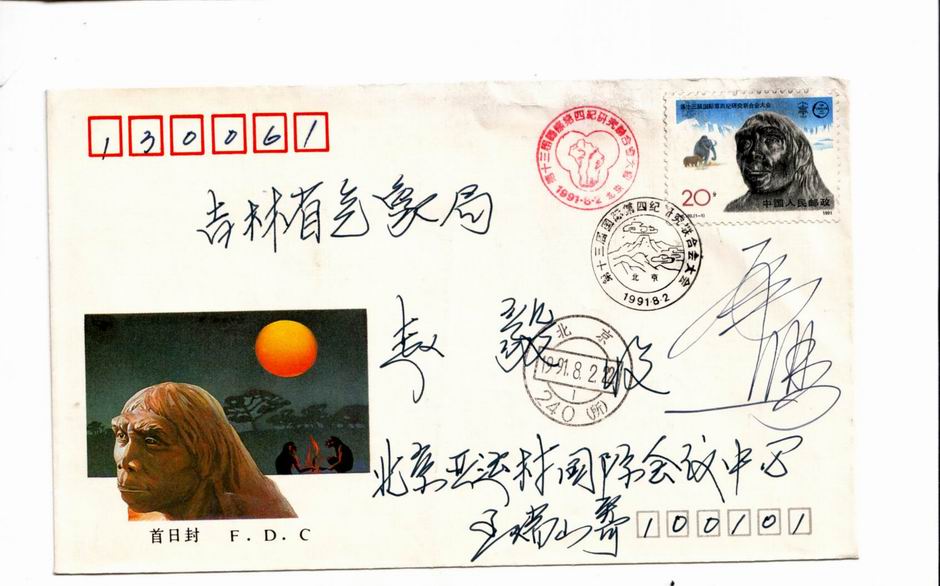 130061
第十三届国际第四纪研究联合会大会
1991·8·2 北京
第十三届国际第四纪研究联合会大会
20分
中国人民邮政
1991
吉林省气象局
第十三届国际第四纪研究联合会大会
北京
1991·8·2
收
北京
1991.8.2.
1
240(所)
北京亚运村国际会议中心
100101
首日封 F.D.C